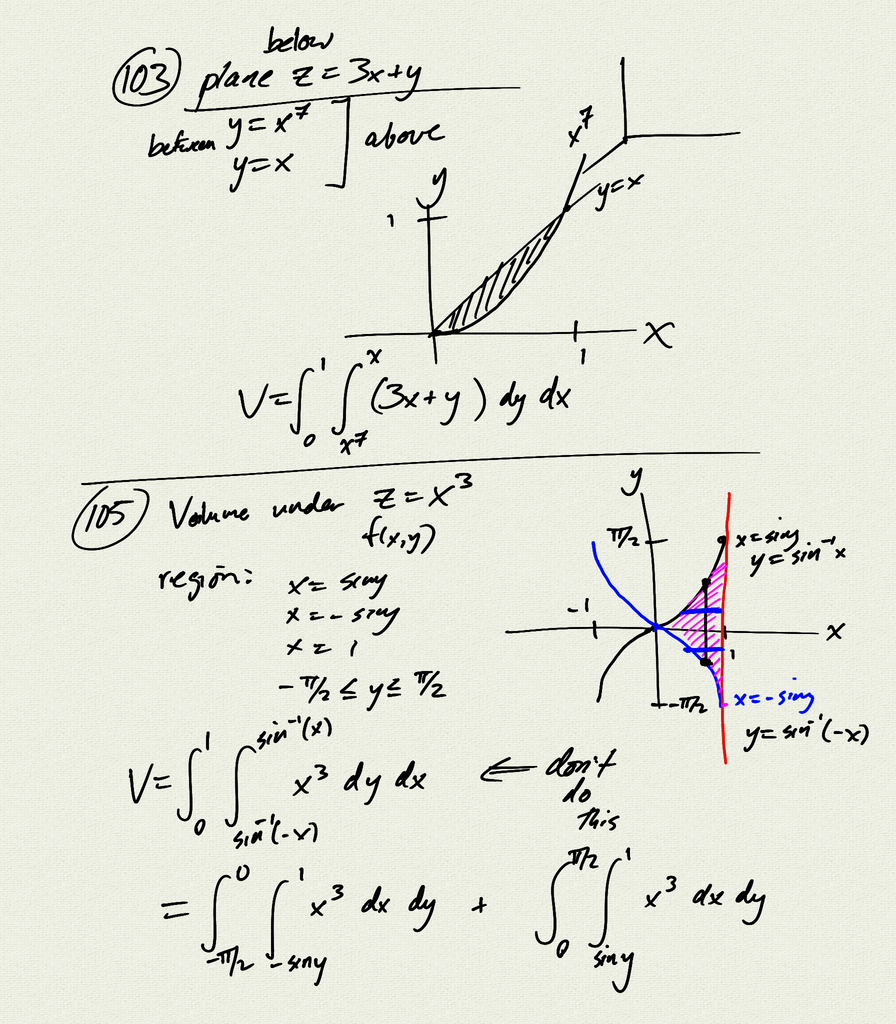 below
(103) plane z = 3x+y
between y = x⁷
y = x ] above
x⁷
y=x
y
1
x
1
V = ∫₀¹ ∫_{x⁷}^{x} (3x+y) dy dx
(105) Volume under z = x³
f(x,y)
region: x = siny
x = - siny
x = 1
-π/2 ≤ y ≤ π/2
y
π/2
x = siny
y = sin⁻¹x
-1
x
1
-π/2
x = -siny
y = sin⁻¹(-x)
V = ∫₀¹ ∫_{sin⁻¹(-x)}^{sin⁻¹(x)} x³ dy dx ⇐ don't
do
this
= ∫_{-π/2}^{0} ∫_{-siny}^{1} x³ dx dy + ∫_{0}^{π/2} ∫_{siny}^{1} x³ dx dy